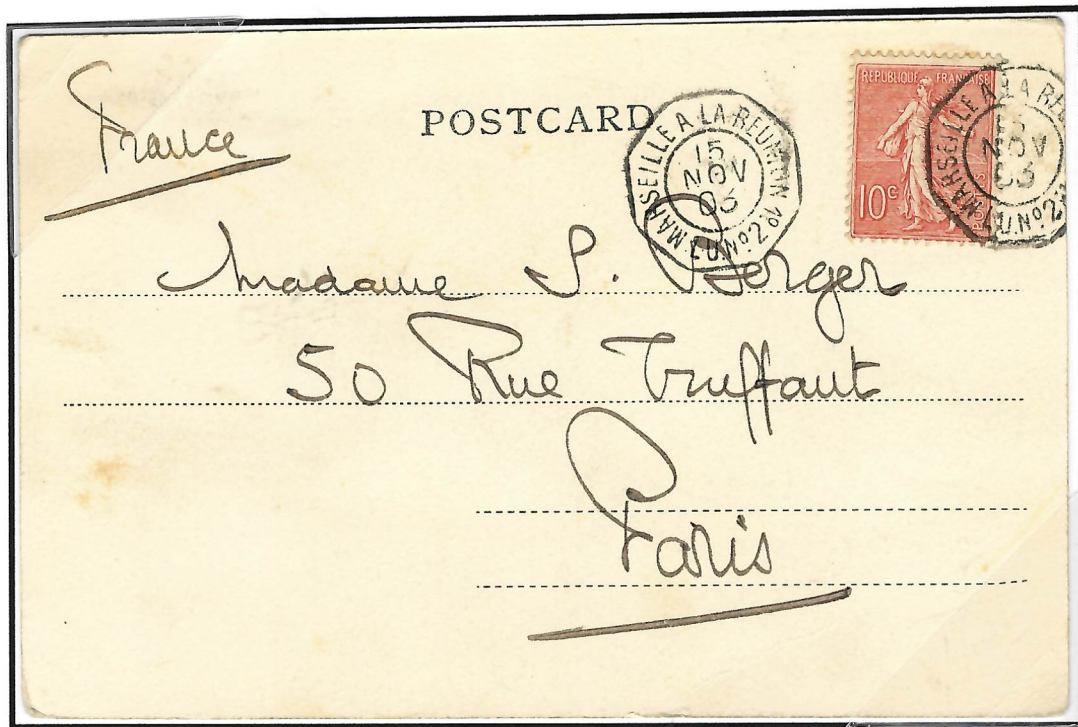 France
POSTCARD
MARSEILLE A LA REUNION
15
NOV
03
L.U.Nº2
REPUBLIQUE FRANÇAISE
10c
POSTES
MARSEILLE A LA RE
15
NOV
03
L.U.Nº2
Madame S. Berger
50 Rue Truffaut
Paris